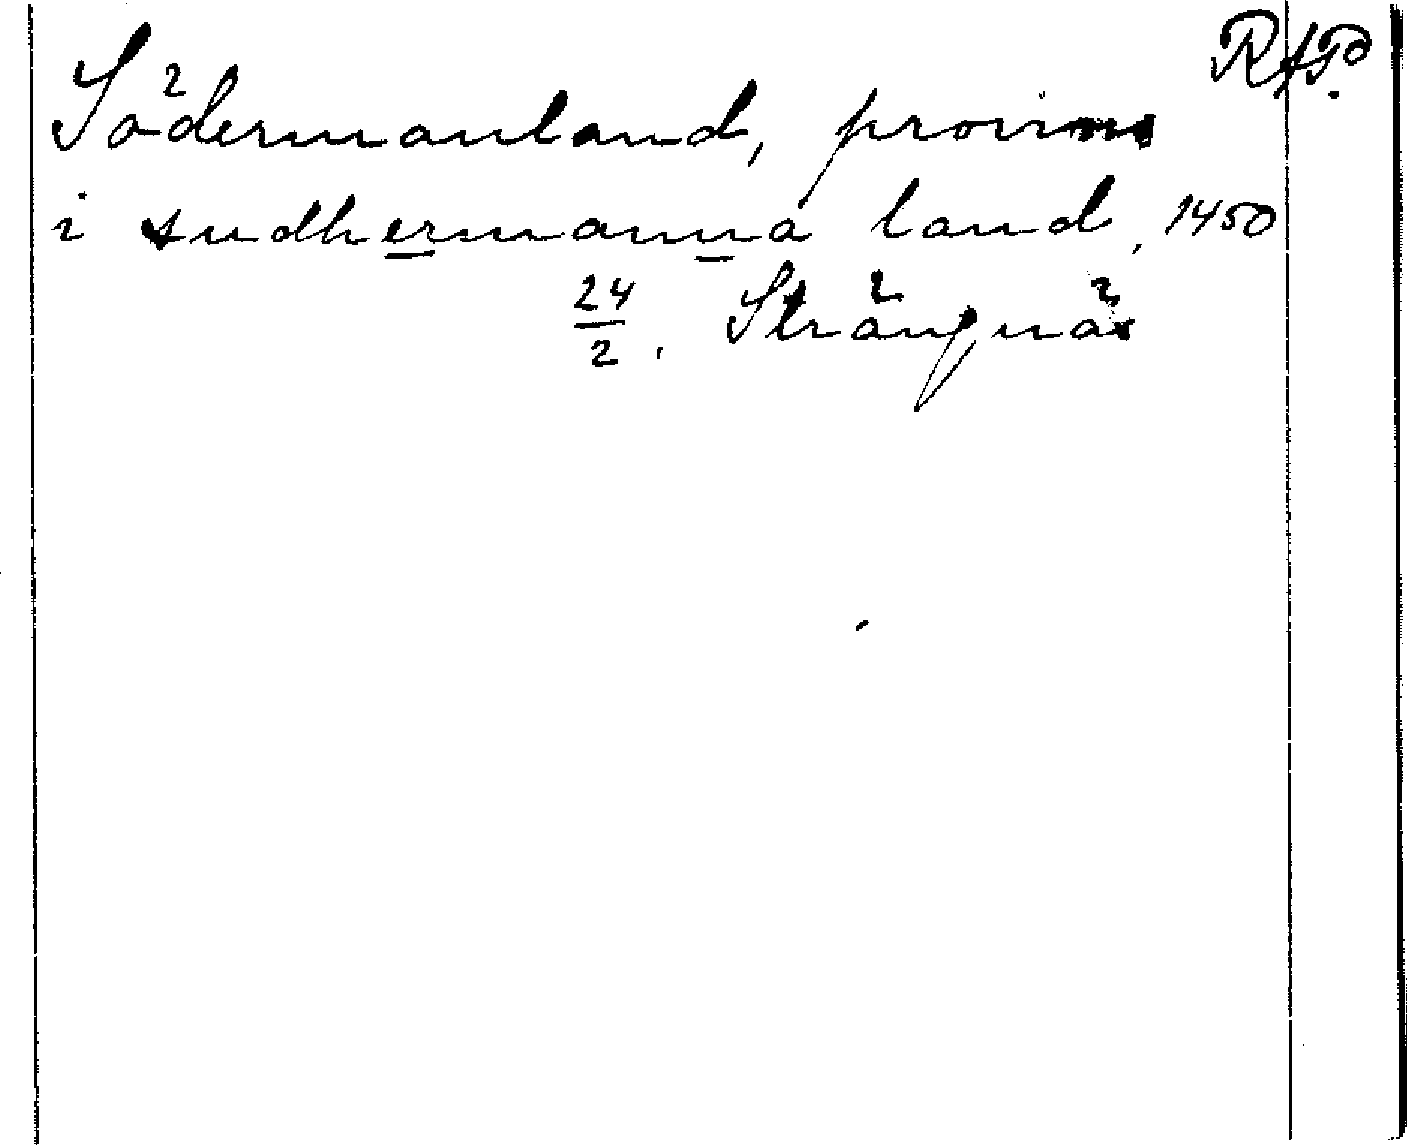 RAP.
Södermanland, provins
i sudhermanna land, 1450
24/2. Strängnäs